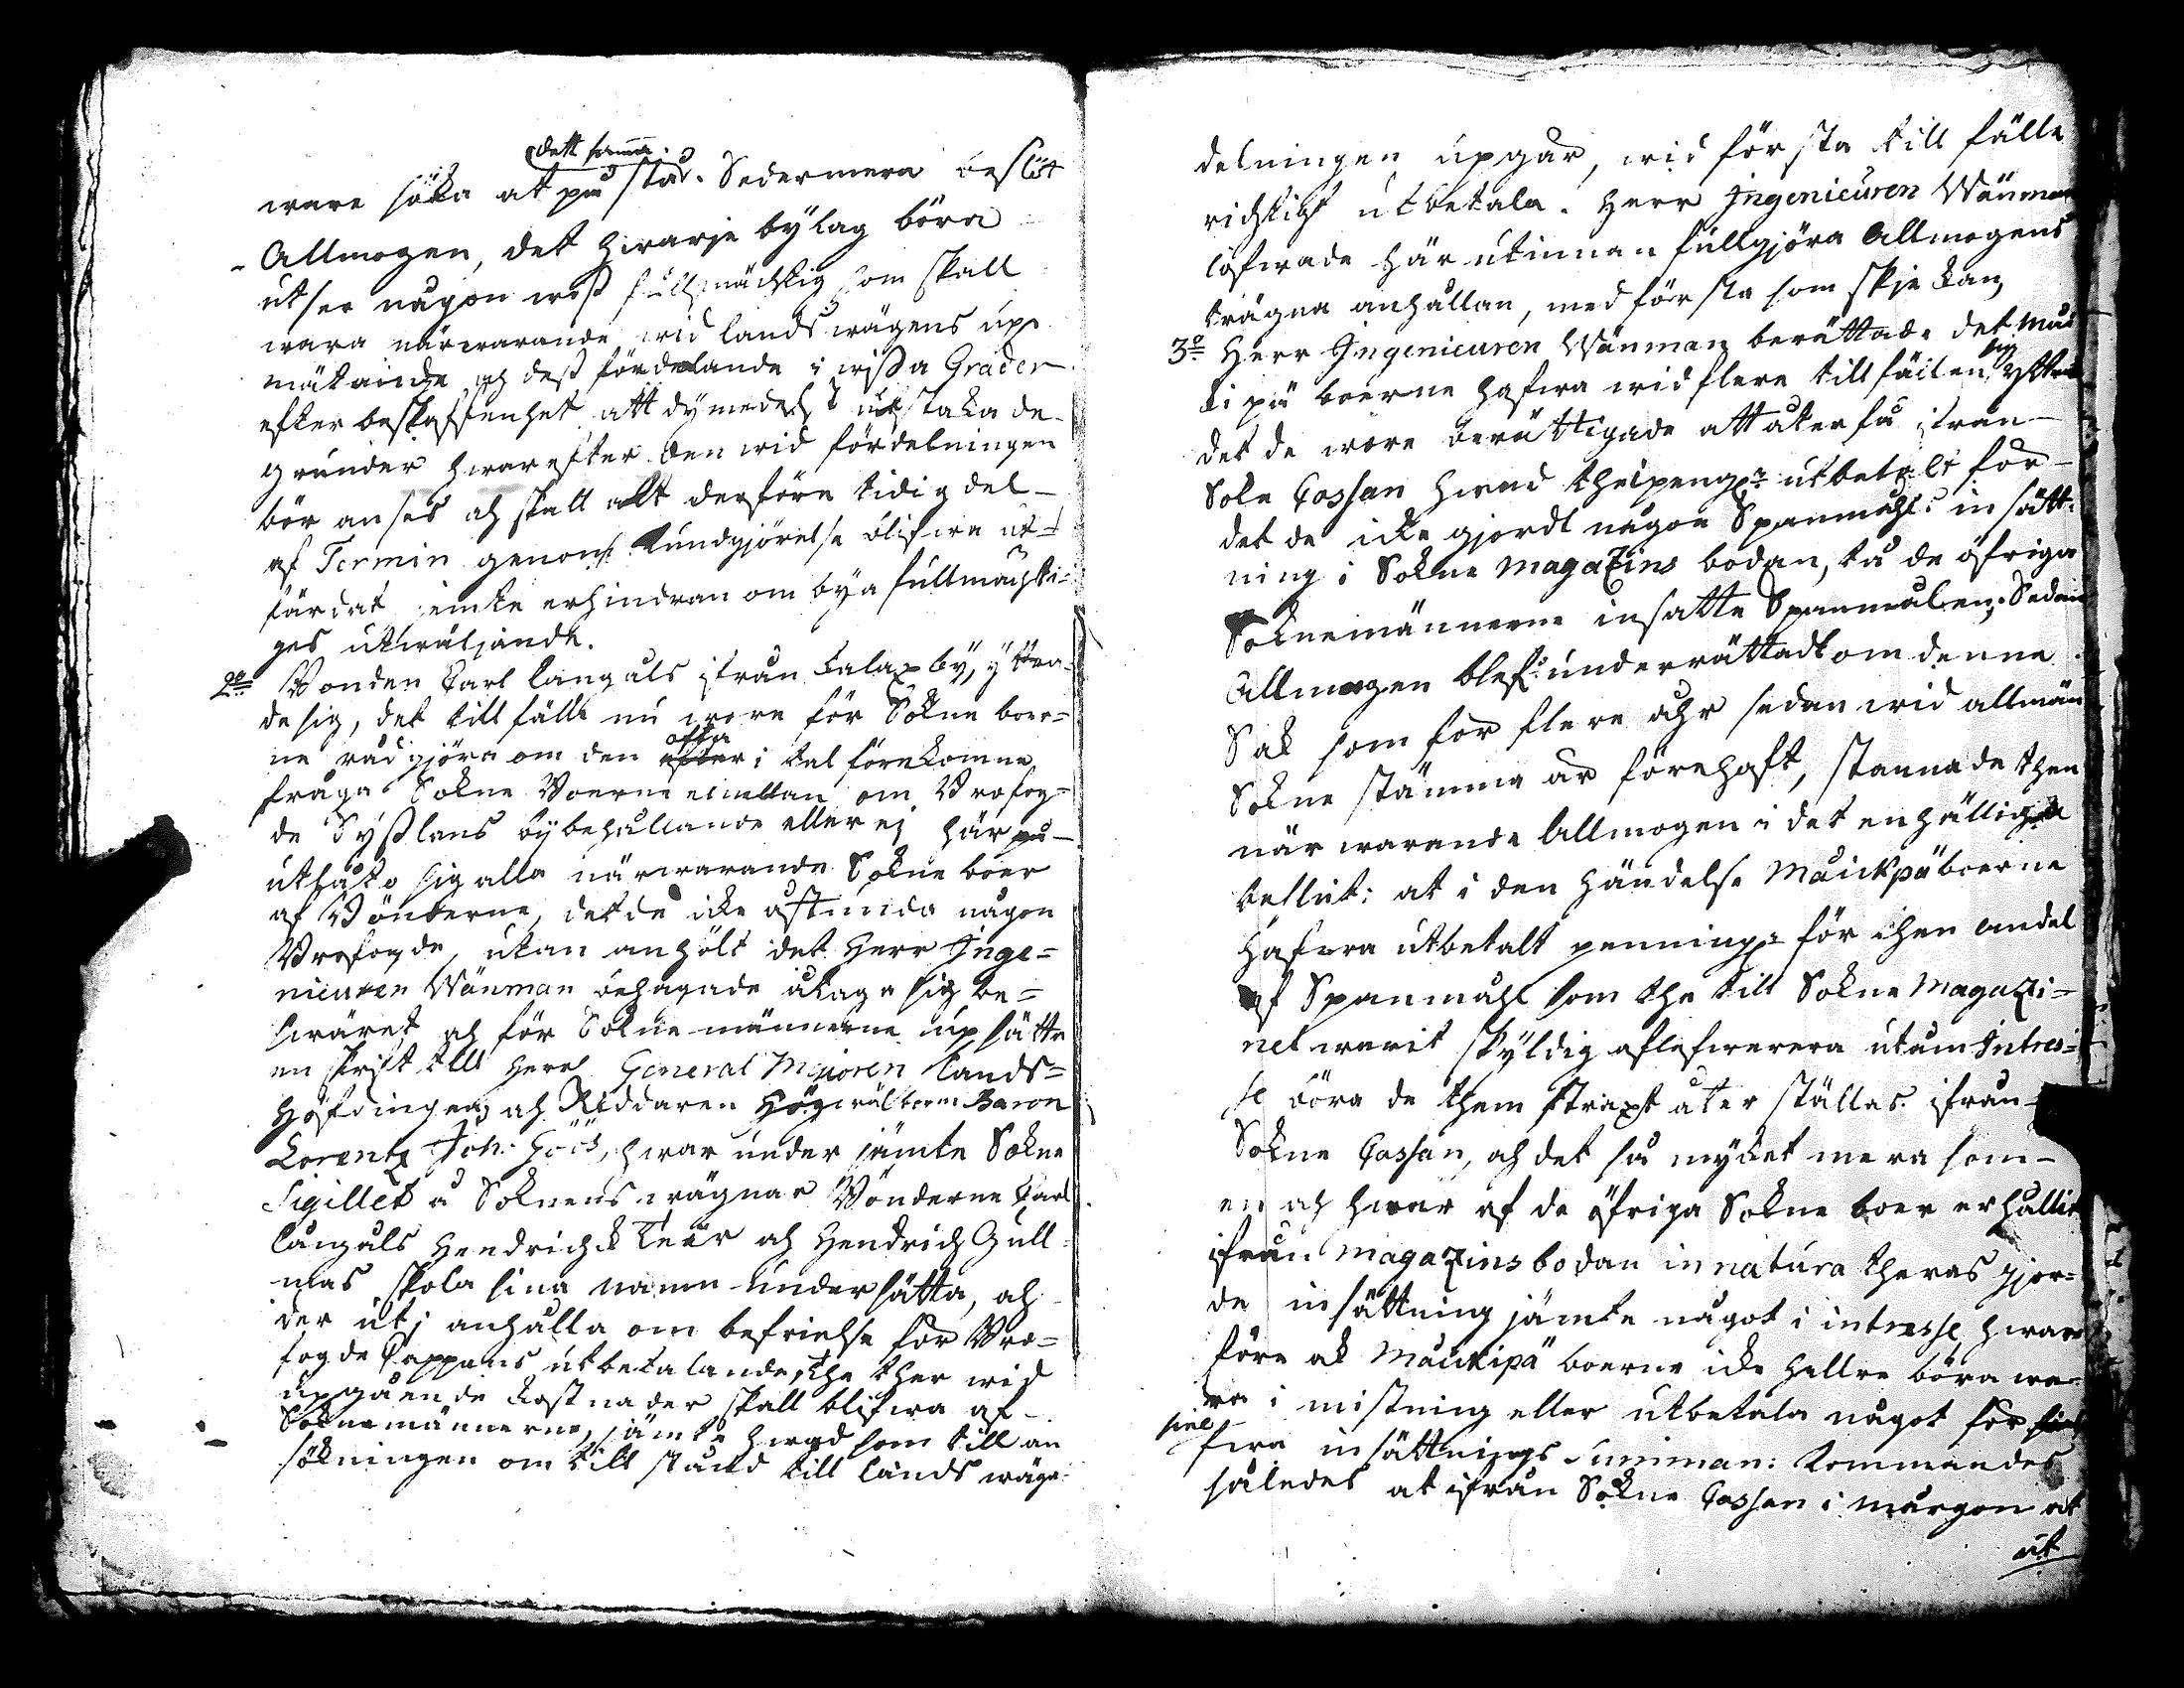 dett samma
ware söka at på stå. Sedermera beslöt
Allmogen, det hwarje bylag böra
utse någon wiß fullmächtig som skall
wara närwarande wid landswägens up-
mätande och deß fördelande i wißa Grader
efter beskaffenhet att dymedelst utstaka de
grunder hwarefter den wid fördelningen
bör anses och skall alt derföre tidig del-
af Termin genom kundgjörelse blifwa ut-
färdat jemte erhindran om bya fullmächti-
ges utwäljande.
2o Bonden Carl Långåls ifrån Kalax by, yttra-
de sig, det tillfälle nu wore för Sokne boer-
ne rådgjöra om den offta i tal förekomne
fråga Sokne Boerne emellan om Brofog-
de Syßlans bybehållande eller ej här på
utlåto sig alla närwarande Sokne boer
af Bönderne, det de icke åstunda någon
Brofogde, utan anhölt det Herr Inge-
nieuren Wänman behagade åtaga sig be-
swäret och för Soknemännerne up sätta
en skrift till Herr General Majoren Lands-
Höfdingen och Riddaren Högwälborne Baron
Lorentz Joh: Göös, hwarunder jämte Sokne
Sigillet å Soknens wägnar Bönderne Carl
Långåls Hendrich Teir och Hendrich Gull-
mas skola sina namn undersätta, och
der uti anhålla om befrielse för Bro-
fogde Cappans utbetalande, the ther wid
upgående kostnader skall blifwa af
Soknemännerne, jämte hwad som till an-
sökningen om tillstånd till lands wäga-
delningen upgår, wid första tillfälle
richtigt utbetala. Herr Ingenieuren Wänman
lofwade härutinnan fullgjöra Allmogens
trägna anhållan, med första som skje kan,
3o Herr Ingenieuren Wänman berättade det Mau-
kipä boerne hafwa wid flere tillfällen sig yttrat
det de wore berättigade att återfå ifrån
Sokne Cassan hwad the i pengar utbetalt för
det de icke gjordt någon Spanmåhls insätt-
ning i Sokne magazins bodan, då de öfriga
Soknemännerne insatte Spanmålen. Sedan
Allmogen blef underrättadt om denne
Sak som för flere åhr sedan wid allmän
Sokne stämma är förehaft, stannade then
när warande Allmogen i det enhälliga
beslut: at i den händelse Mauckpäboerne
Hafwa utbetalt penningar för then andel
af Spanmåhl som the till Sokne Magazi-
net warit skyldig aflefwerera utum Intres-
se böra de them straxt åter ställas ifrån
Sokne Cassan, och det så mycket mera som
en och hwar af de öfriga Sokne boer erhållit
ifrån Magazinsbodan in natura theras gjor-
de insättning jämte något i intresse hwar
före ock Mauckipä boerne icke hellre böra wa-
ra i mistning eller utbetala något för siel
fwa insättnings Summan: kommandes
således at ifrån Sokne Cassan i morgon at
ut